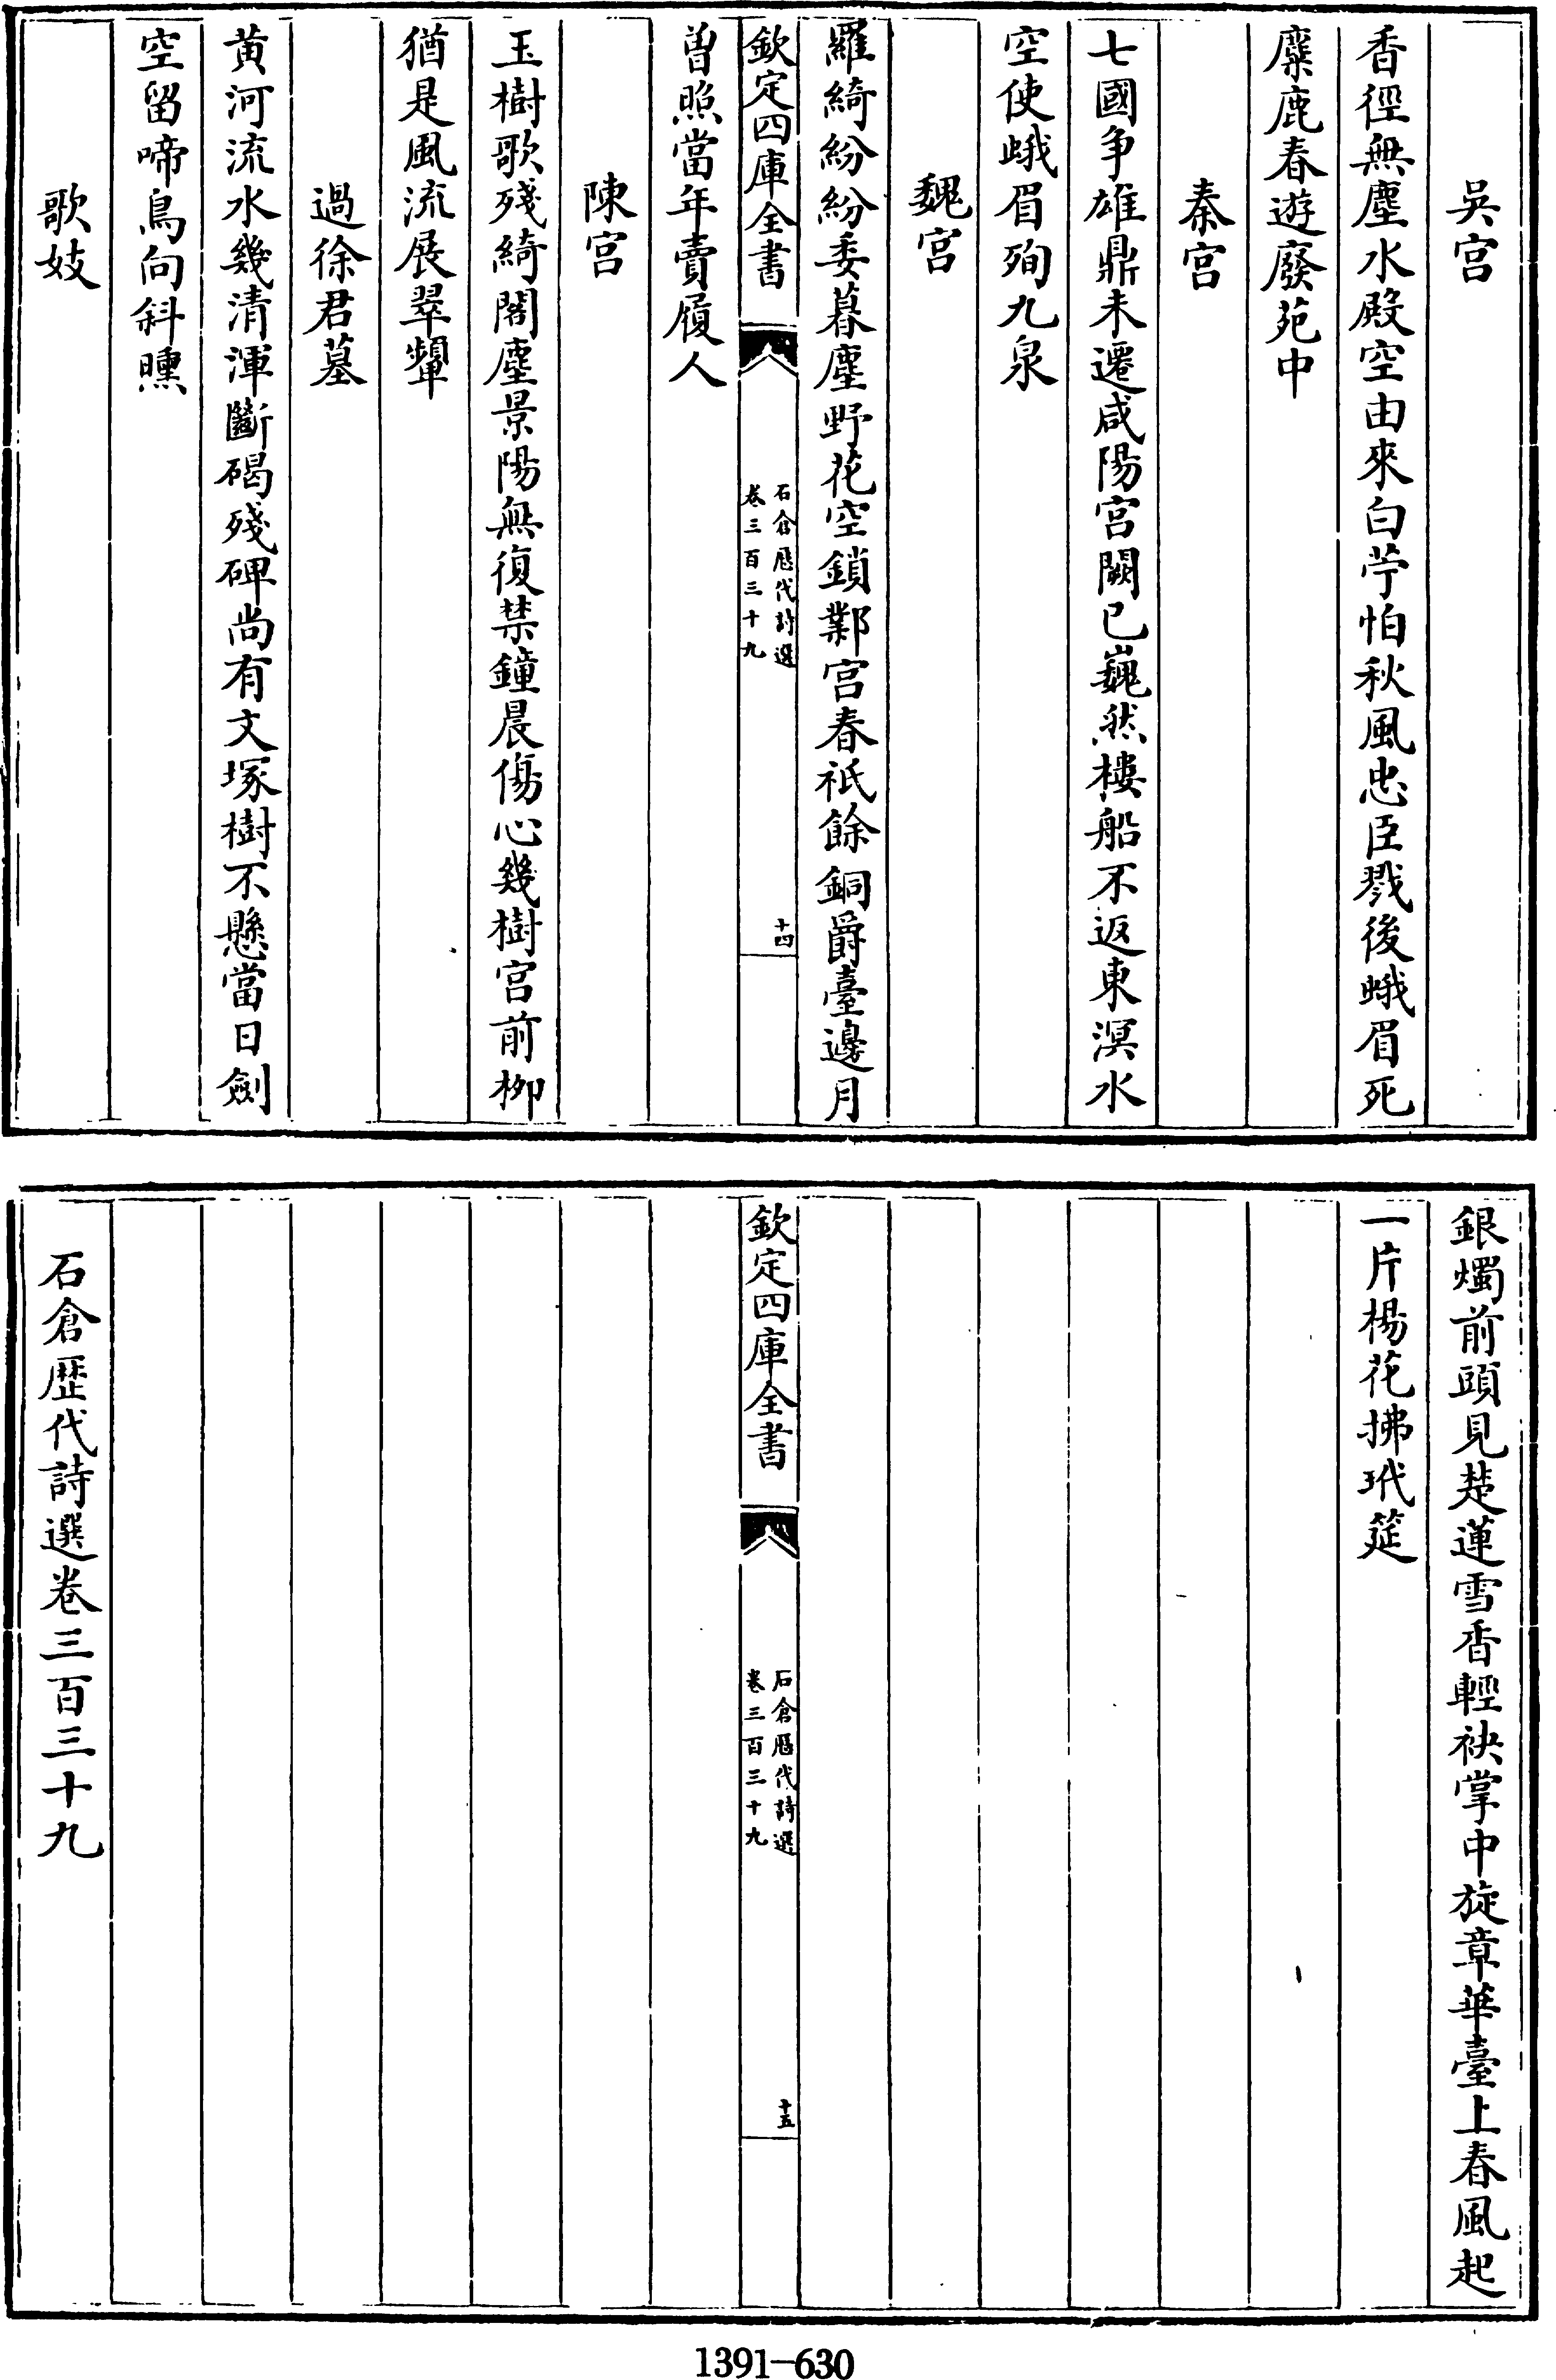 吳宫
香徑無塵水殿空由來白苧怕秋風忠臣戮後蛾眉死
麋鹿春遊廢苑中
秦宫
七國争雄鼎未遷咸陽宫闕已巍然樓船不返東溟水
空使蛾眉殉九泉
魏宫
羅綺紛紛委暮塵野花空鎖鄴宫春祇餘銅爵臺邊月
欽定四庫全書
石倉歷代詩選
卷三百三十九
十四
曾照當年賣履人
陳宫
玉樹歌殘綺閣塵景陽無復禁鐘晨傷心幾樹宫前柳
猶是風流展翠顰
過徐君墓
黄河流水幾清渾斷碣殘碑尚有文塚樹不懸當日劍
空留啼鳥向斜曛
歌妓
銀燭前頭見楚蓮雪香輕袂掌中旋章華臺上春風起
一片楊花拂玳筵
欽定四庫全書
石倉歷代詩選
卷三百三十九
十五
石倉歷代詩選卷三百三十九
1391-630